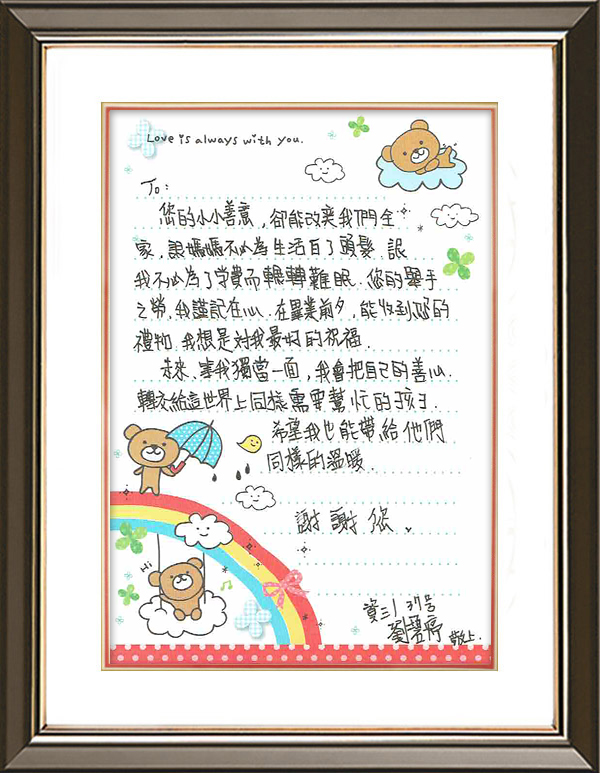 Love is always with you.
To:
您的小小善意,卻能改變我們全
家,讓媽媽不必為生活白了頭髮.讓
我不必為了學費而輾轉難眠.您的舉手
之勞,我謹記在心.在畢業前夕,能收到您的
禮物.我想是對我最好的祝福.
未來.等我獨當一面,我會把自己的善心.
轉交給這世界上同樣需要幫忙的孩子.
希望我也能帶給他們
同樣的溫暖.
謝謝您.
Hi
資三1 37号
劉 婷 敬上.